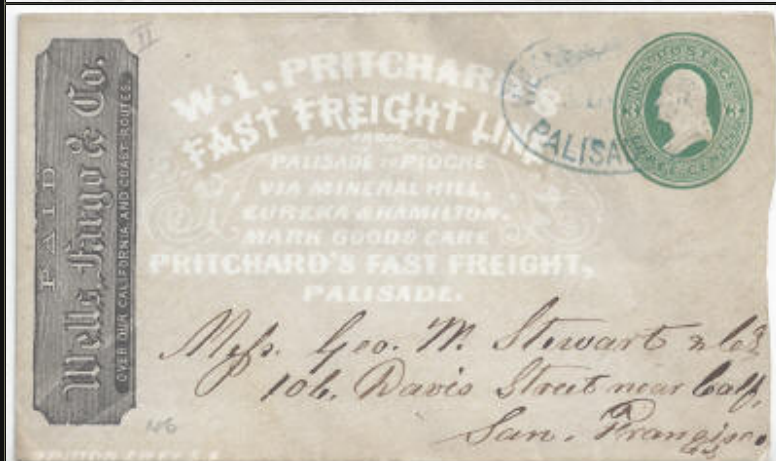 PAID
Wells, Fargo & Co.
OVER OUR CALIFORNIA AND COAST ROUTES.
II
W. L. PRITCHARD'S
FAST FREIGHT LINE
FROM
PALISADE TO PIOCHE
VIA MINERAL HILL,
EUREKA & HAMILTON.
MARK GOODS CARE
PRITCHARD'S FAST FREIGHT,
PALISADE.
PALISA
U.S. POSTAGE
3 3
THREE CENTS
Mess. Geo. M. Stewart & Co
106. Davis Street near Calf.
San. Francisco